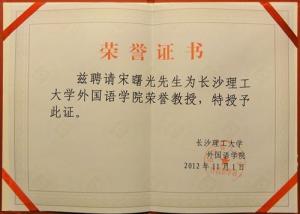 荣誉证书
兹聘请宋曙光先生为长沙理工
大学外国语学院荣誉教授，特授予
此证。
长沙理工大学
外国语学院
2012年11月1日